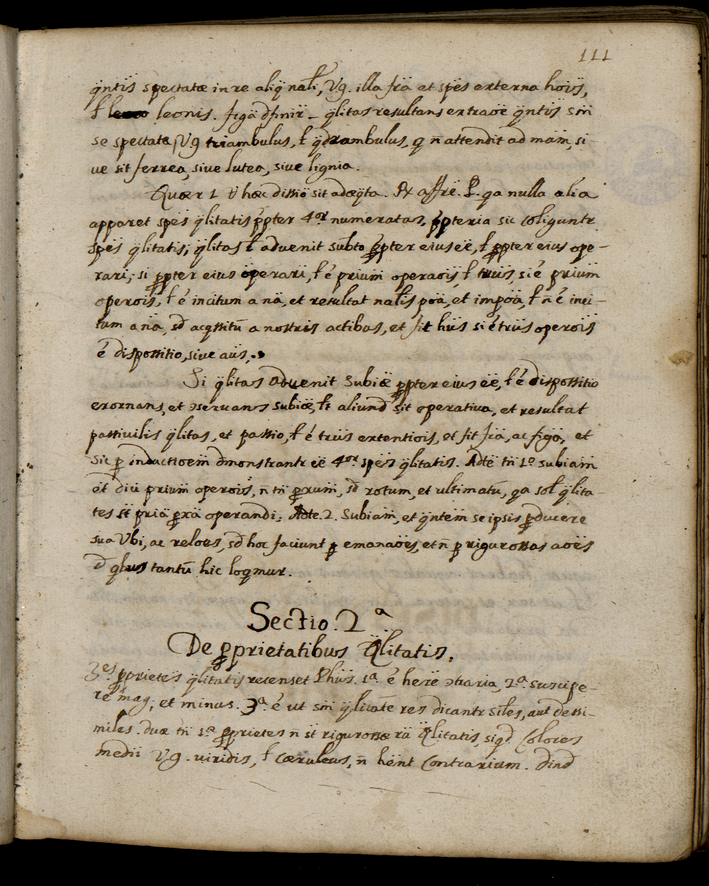 111
q̃ntis spectatæ in re aliq̃ nal̃i, Vg. illa fr̃a et spẽs externa hoĩs,
l̃ leonis. figã dfinir̃ – q̃litas resultans ex traõe q̃ntis sm̃
se spectatæ, Vg triambulus, l̃ qdrambulus, q ñ attendit ad mam̃, si-
ve sit ferrea, sive lutea, sive lignia.
Quær 1 ũ hæc dissiõ sit adæq̃ta. Rx affrẽ. P. qa nulla alia
apparet spẽs q̃litatis p̃pter 4or numeratas, p̃pteria sic coliguntr
spẽs q̃litatis; q̃litas l̃ advenit subto p̃pter eius eẽ, l̃ p̃pter eius ope-
rari; si p̃pter eius operari, l̃ ẽ prium̃ operaõis, l̃ triis, si ẽ prium̃
operõis, l̃ ẽ incitum a nã, et resultat nal̃is poã, et impoã, l̃ ñ ẽ inci-
tum a nã, sd acqsitũ a nostris actibus, et fit hũs si ẽ triis operõis
ẽ dispossitio, sive aũs,
Si q̃litas advenit subiẽ p̃pter eius eẽ, l̃ ẽ dispossitio
exornans, et ɔservans subiẽ, l̃ aliund sit operativa, et resultat
passivilis q̃litas, et passio, l̃ ẽ triis extentiõis, et fit fr̃a, ac figã, et
sic p inductioem̃ dmonstrantr eẽ 4or spẽs q̃litatis. Adte tñ 1º subiam̃
ẽt dici prium̃ operõis, ñ tñ prxum̃, sd rotum, et ultimatũ, qa sol̃ q̃lita-
tes st̃ priã prxã operandi; Adte. 2. Subiam̃, et q̃ntem̃ se ipsis pducere
sua Vbi, ac reloẽs, sd hoc faciunt p emanaõẽs, et ñ p rigurossas aõẽs
d qbus tantũ hic loqmur.
Sectio. 2ª
De p̃prietatibus Qlitatis.
3es p̃prietẽs q̃litatis recenset Phũs. 1ª ẽ herẽ ɔtraria, 2ª suscipe-
re mag, et minus. 3ª ẽ ut sm̃ q̃litate res dicantr siles, aut dissi-
miles. duæ tñ 1ª p̃prietes ñ st̃ rigurosæ rũ Qlitatis, siqd Colores
medii Vg. viridis, l̃ Cæruleus, ñ hẽnt Contrarium. dind